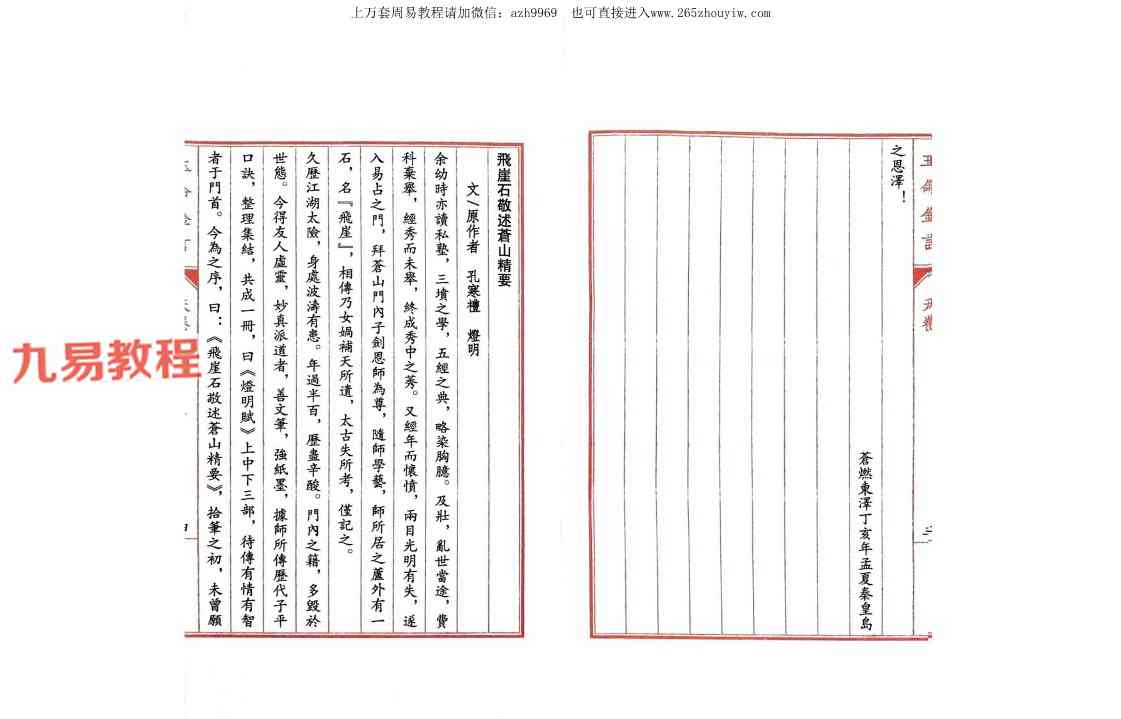 上万套周易教程请加微信：azh9969 也可直接进入www.265zhouyiw.com
之恩澤！
蒼燃東澤丁亥年孟夏秦皇島
飛崖石敬述蒼山精要
文/原作者 孔寒檀 燈明
余幼時亦讀私塾，三墳之學，五經之典，略染胸臆。及壯，亂世當途，費
科棄舉，經秀而未舉，終成秀中之莠。又經年而懷憤，兩目光明有失，遂
入易占之門，拜蒼山門內子劍恩師為尊，隨師學藝，師所居之蘆外有一
石，名『飛崖』，相傳乃女媧補天所遺，太古失所考，僅記之。
久歷江湖太險，身處波濤有患。年過半百，歷盡辛酸。門內之籍，多毀於
世態。今得友人虛靈，妙真派道者，善文筆，強紙墨，據師所傳歷代子平
口訣，整理集結，共成一冊，曰《燈明賦》上中下三部，待傳有情有智
者于門首。今為之序，曰：《飛崖石敬述蒼山精要》，拾筆之初，未曾願
九易教程